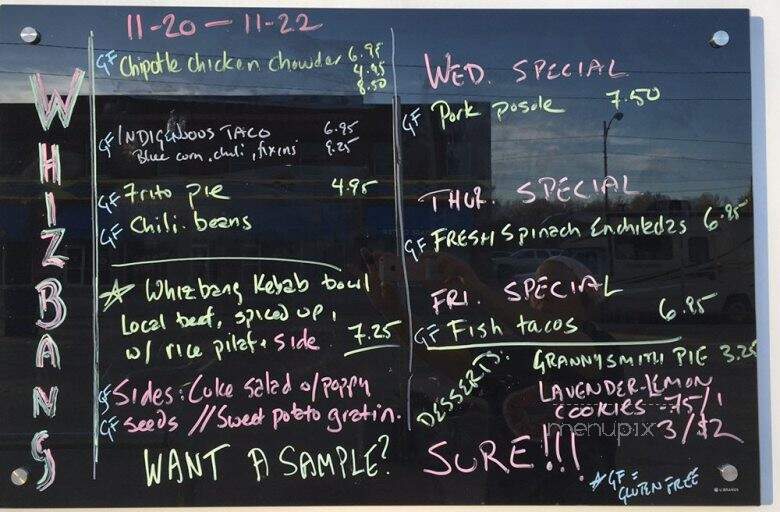 11-20 — 11-22
WHIZBANG
GF Chipotle chicken chowder 6.95
4.95
8.50
GF INDIGENOUS TACO 6.95
Blue corn, chili, fixins 9.25
GF Frito pie 4.95
GF Chili beans
☆ Whizbang Kebab bowl
Local beef, spiced up,
w/ rice pilaf + side 7.25
GF Sides: Cuke salad w/poppy
GF seeds // Sweet potato gratin.
WED. SPECIAL
GF Pork posole 7.50
THUR. SPECIAL
GF FRESH Spinach Enchiladas 6.95
FRI. SPECIAL
GF Fish tacos 6.95
DESSERTS:
GRANNYSMITH PIE 3.25
LAVENDER-LEMON
COOKIES .75/1
3/$2
menupix
WANT A SAMPLE? SURE!!!
☆ GF =
GLUTEN FREE
U BRANDS